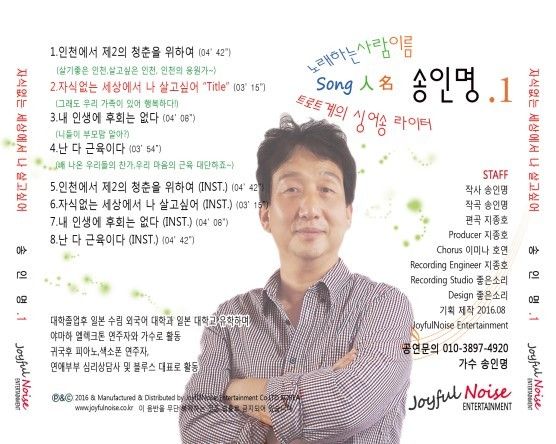 자식없는 세상에서 나 살고싶어
송 인 명 .1
Joyful Noise
ENTERTAINMENT
노래하는사람이름
Song 人 名 송인명 .1
트로트계의 싱어송 라이터
1.인천에서 제2의 청춘을 위하여 (04' 42")
(살기좋은 인천,살고싶은 인천, 인천의 응원가~)
2.자식없는 세상에서 나 살고싶어 "Title" (03' 15")
(그래도 우리 가족이 있어 행복하다!)
3.내 인생에 후회는 없다 (04' 08")
(니들이 부모맘 알아?)
4.난 다 근육이다 (03' 54")
(배 나온 우리들의 찬가,우리 마음의 근육 대단하죠~)
5.인천에서 제2의 청춘을 위하여 (INST.) (04' 42")
6.자식없는 세상에서 나 살고싶어 (INST.) (03' 15")
7.내 인생에 후회는 없다 (INST.) (04' 08")
8.난 다 근육이다 (INST.) (04' 42")
STAFF
작사 송인명
작곡 송인명
편곡 지종호
Producer 지종호
Chorus 이미나 호연
Recording Engineer 지종호
Recording Studio 좋은소리
Design 좋은소리
기획 제작 2016.08
JoyfulNoise Entertainment
공연문의 010-3897-4920
가수 송인명
대학졸업후 일본 수림 외국어 대학과 일본 대학교 유학하며,
야마하 엘렉크톤 연주자와 가수로 활동
귀국후 피아노,색소폰 연주자,
연예부부 심리상담사 및 블루스 대표로 활동
P&C 2016 & Manufactured & Distributed by JoyfulNoise Entertainment Co.LTD KOREA
www.joyfulnoise.co.kr 이 음반을 무단 복제하는 것은 법률로 금지되어 있습니다
Joyful Noise
ENTERTAINMENT
자식없는 세상에서 나 살고싶어
송 인 명 .1
Joyful Noise
ENTERTAINMENT